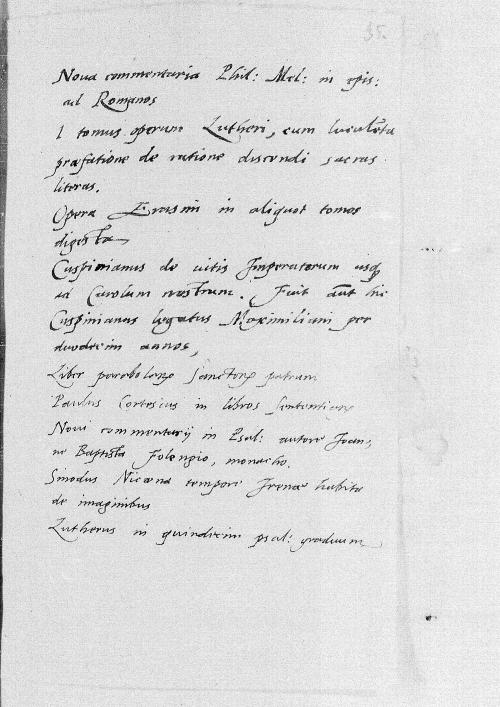 35.
Noua commentaria Phil: Mel: in epis:
ad Romanos
I tomus operum Lutheri, cum luculẽta
præfatione de ratione discendi sacras
literas.
Opera Erasmi in aliquot tomos
digesta
Cuspinianus de vitis Imperatorum usq́
ad Carolum nostrum. Fuit aũt hic
Cuspinianus legatus Maximiliani per
duodecim annos,
Liber parabolarꝝ Sanctorꝝ patrum
Paulus Cortesius in libros sententiarꝝ
Noui commentarij in Psal: autore Joan,
ne Baptista Folengio, monacho.
Sinodus Nicæna tempore Irenæ habita
de imaginibus
Lutherus in quindecim psal: graduum